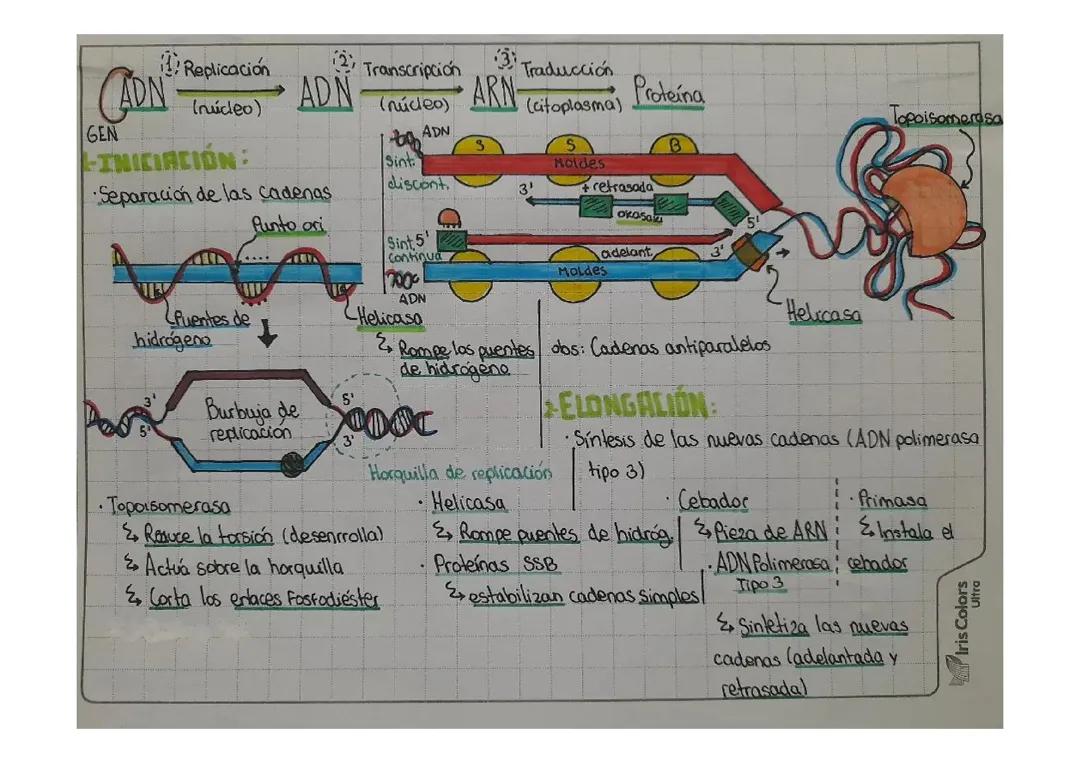 1 Replicación 2 Transcripción 3 Traducción
ADN ADN ARN Proteína
(núcleo) (núcleo) (citoplasma)
GEN
1-INICIACIÓN:
·Separación de las cadenas
Punto ori
Puentes de
hidrógeno
Helicasa
Rompe los puentes
de hidrógeno
ADN
Sint.
discont.
S S B
Moldes
3' + retrasada
okasaki
5'
Sint. 5'
continua
adelant. 3'
Moldes
ADN
Topoisomerasa
Helicasa
obs: Cadenas antiparalelas
3' 5'
Burbuja de
replicación
5' 3'
Horquilla de replicación
2-ELONGACIÓN:
· Síntesis de las nuevas cadenas (ADN polimerasa
tipo 3)
· Topoisomerasa
Reduce la torsión (desenrrolla)
Actúa sobre la horquilla
Corta los enlaces Fosfodiéster
· Helicasa
Rompe puentes de hidróg.
· Proteínas SSB
estabilizan cadenas simples
· Cebador
Pieza de ARN
· ADN Polimerasa
Tipo 3
Sintetiza las nuevas
cadenas (adelantada y
retrasada)
· Primasa
Instala el
cebador
Iris Colors
Ultra